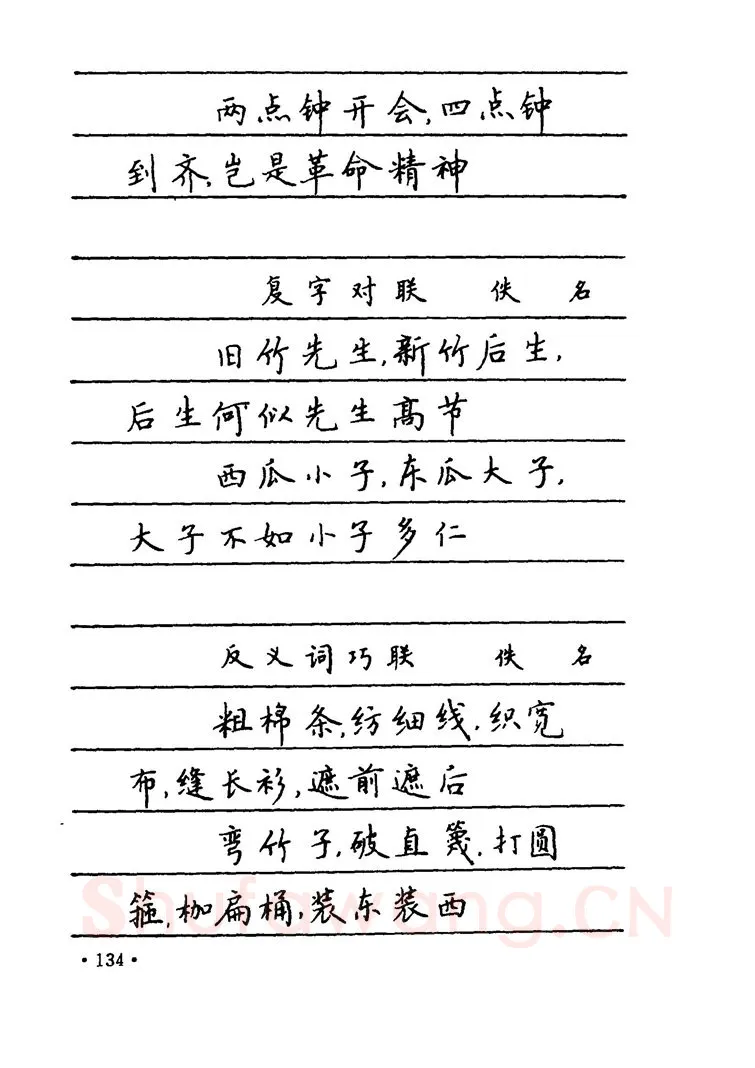 两点钟开会,四点钟
到齐,岂是革命精神
复字对联 佚 名
旧竹先生,新竹后生,
后生何似先生高节
西瓜小子,东瓜大子,
大子不如小子多仁
反义词巧联 佚 名
粗棉条,纺细线,织宽
布,缝长衫,遮前遮后
弯竹子,破直篾,打圆
箍,枷扁桶,装东装西
Shufawang.CN
·134·